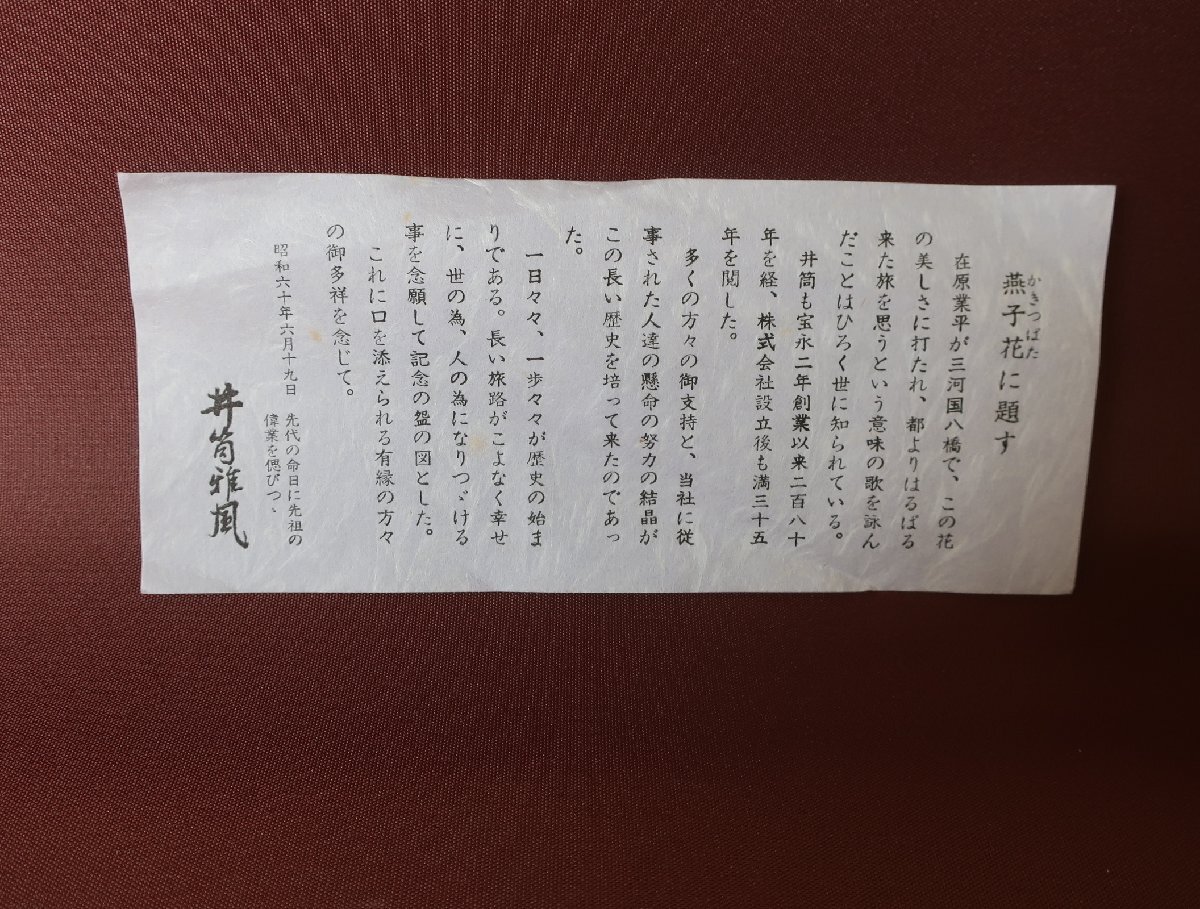 かきつばた
燕子花に題す
在原業平が三河国八橋で、この花
の美しさに打たれ、都よりはるばる
来た旅を思うという意味の歌を詠ん
だことはひろく世に知られている。
井筒も宝永二年創業以来二百八十
年を経、株式会社設立後も満三十五
年を閲した。
多くの方々の御支持と、当社に従
事された人達の懸命の努力の結晶が
この長い歴史を培って来たのであっ
た。
一日々々、一歩々々が歴史の始ま
りである。長い旅路がこよなく幸せ
に、世の為、人の為になりつゞける
事を念願して記念の盌の図とした。
これに口を添えられる有縁の方々
の御多祥を念じて。
昭和六十年六月十九日
先代の命日に先祖の
偉業を偲びつゝ
井筒雅風